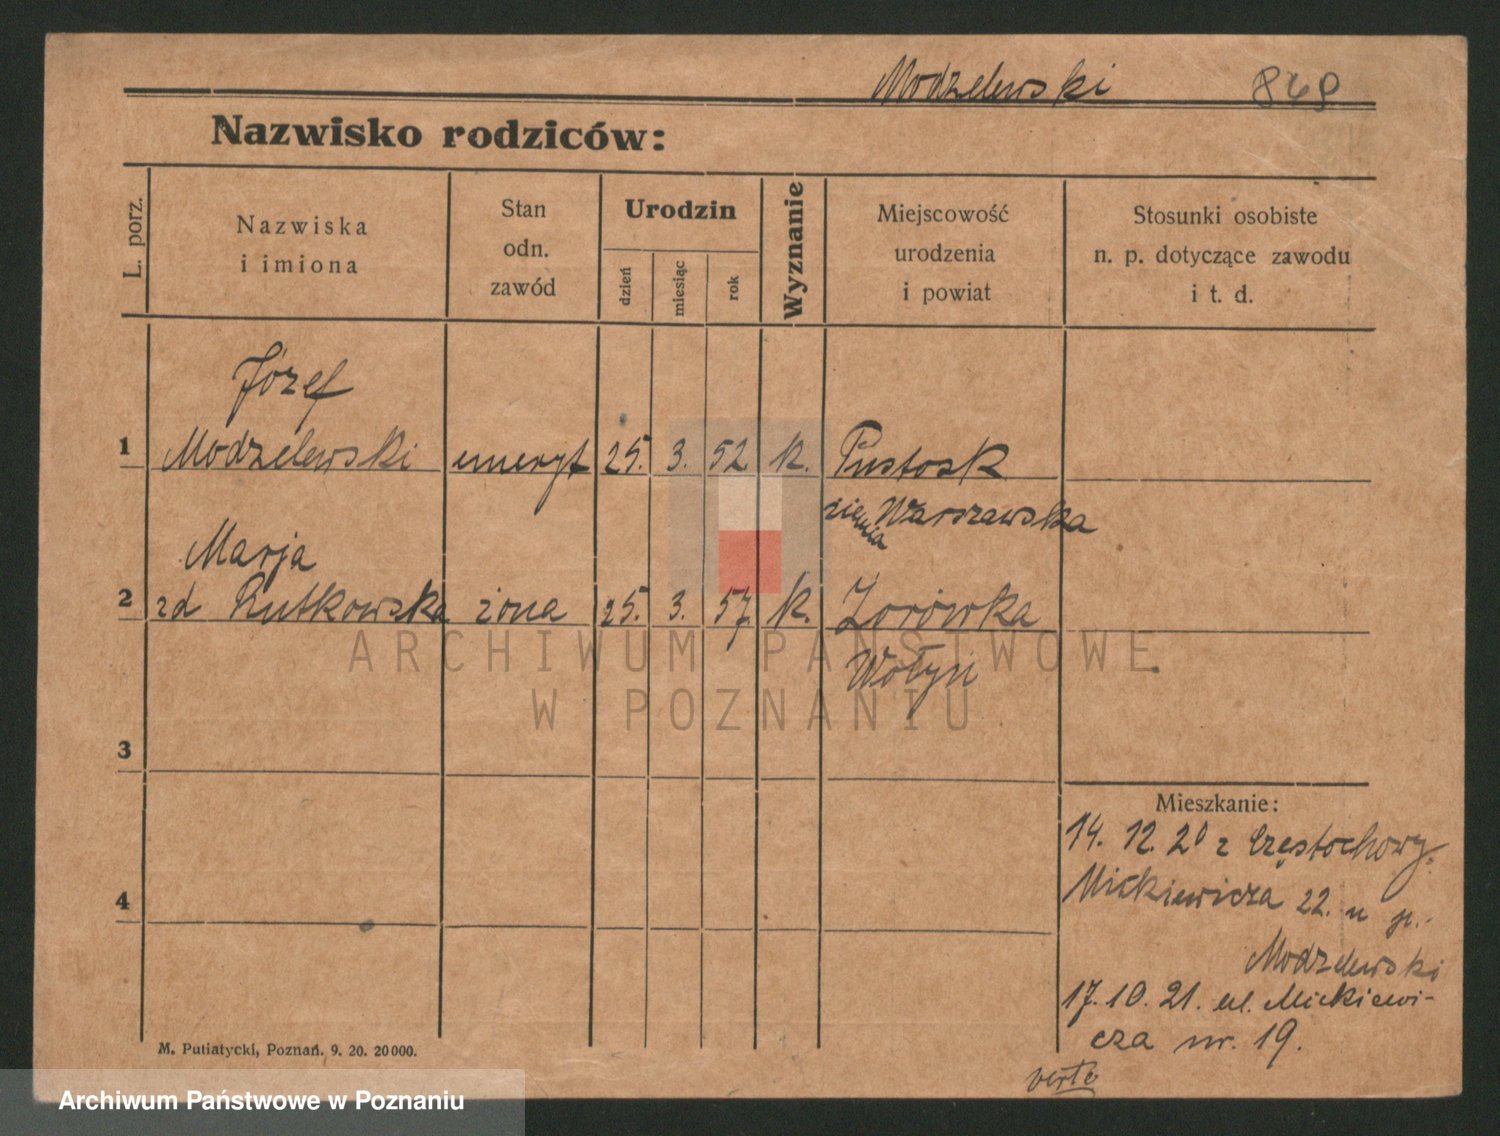 Modzelewski 849
Nazwisko rodziców:
L. porz.
Nazwiska
i imiona
Stan
odn.
zawód
Urodzin
dzień
miesiąc
rok
Wyznanie
Miejscowość
urodzenia
i powiat
Stosunki osobiste
n. p. dotyczące zawodu
i t. d.
Józef
1 Modzelewski emeryt 25. 3. 52 k. Pustosk
ziemia Warszawska
Marja
2 zd Rutkowska żona 25. 3. 57. k. Zorówka
Wołyń
ARCHIWUM PAŃSTWOWE
W POZNANIU
3
4
Mieszkanie:
14. 12. 20 z Częstochowy.
Mickiewicza 22. u p.
Modzelewski
17. 10. 21. ul. Mickiewi-
cza nr. 19.
verte
M. Putiatycki, Poznań. 9. 20. 20000.
Archiwum Państwowe w Poznaniu